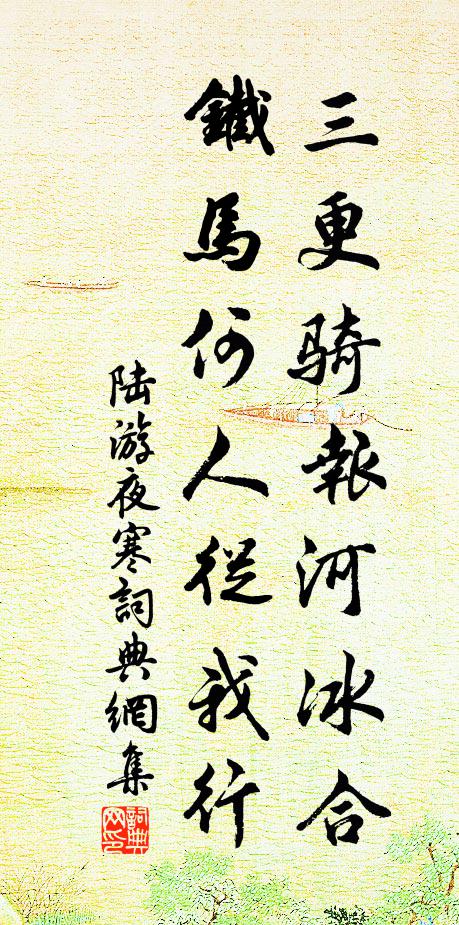 三更騎報河冰合
鐵馬何人從我行
陆游夜寒詞典網集
詞典网印